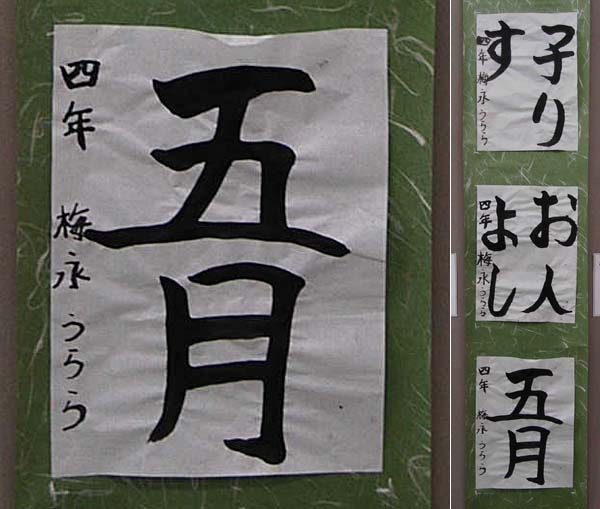 五月
四年 梅永うらら
子り
す
四年 梅永うらら
お人
よし
四年 梅永うらら
五月
四年 梅永うらら